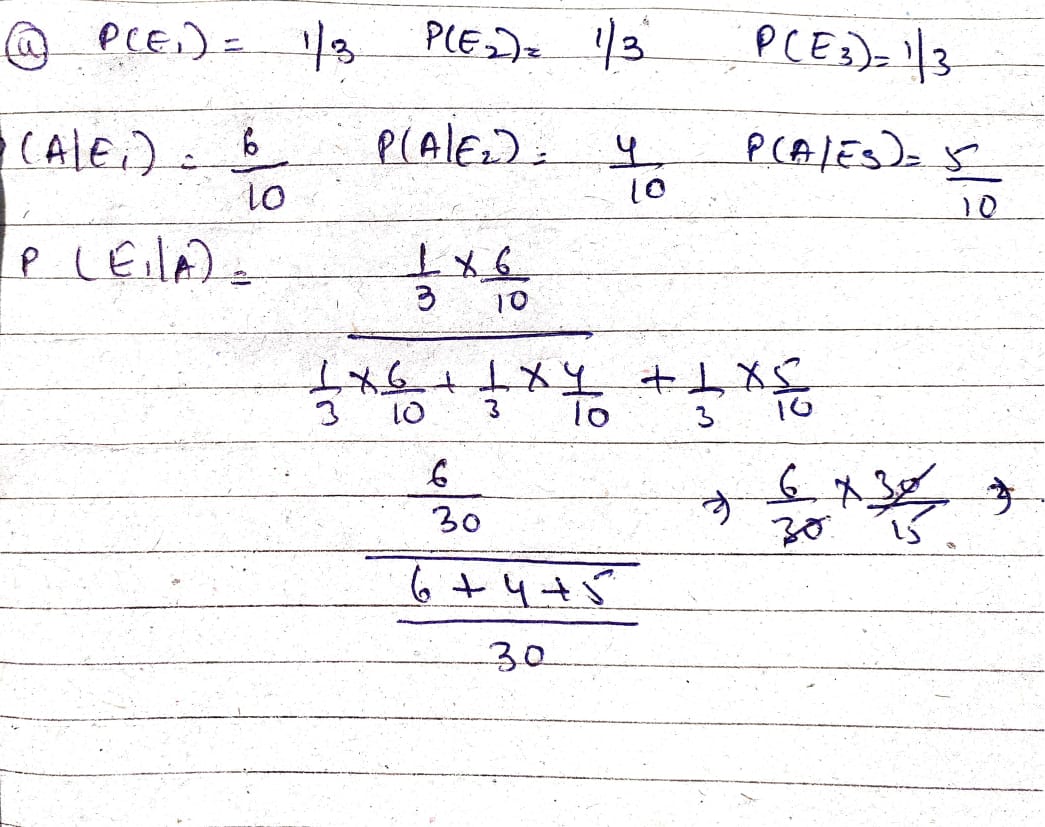 (a) P(E₁) = 1/3 P(E₂) = 1/3 P(E3) = 1/3
P(A|E₁) = 6/10 P(A|E₂) = 4/10 P(A|E3) = 5/10
P(E₁|A) = (1/3 × 6/10) / (1/3 × 6/10 + 1/3 × 4/10 + 1/3 × 5/10)
(6/30) / ((6+4+5)/30) ⇒ 6/30 × 30/15 ⇒